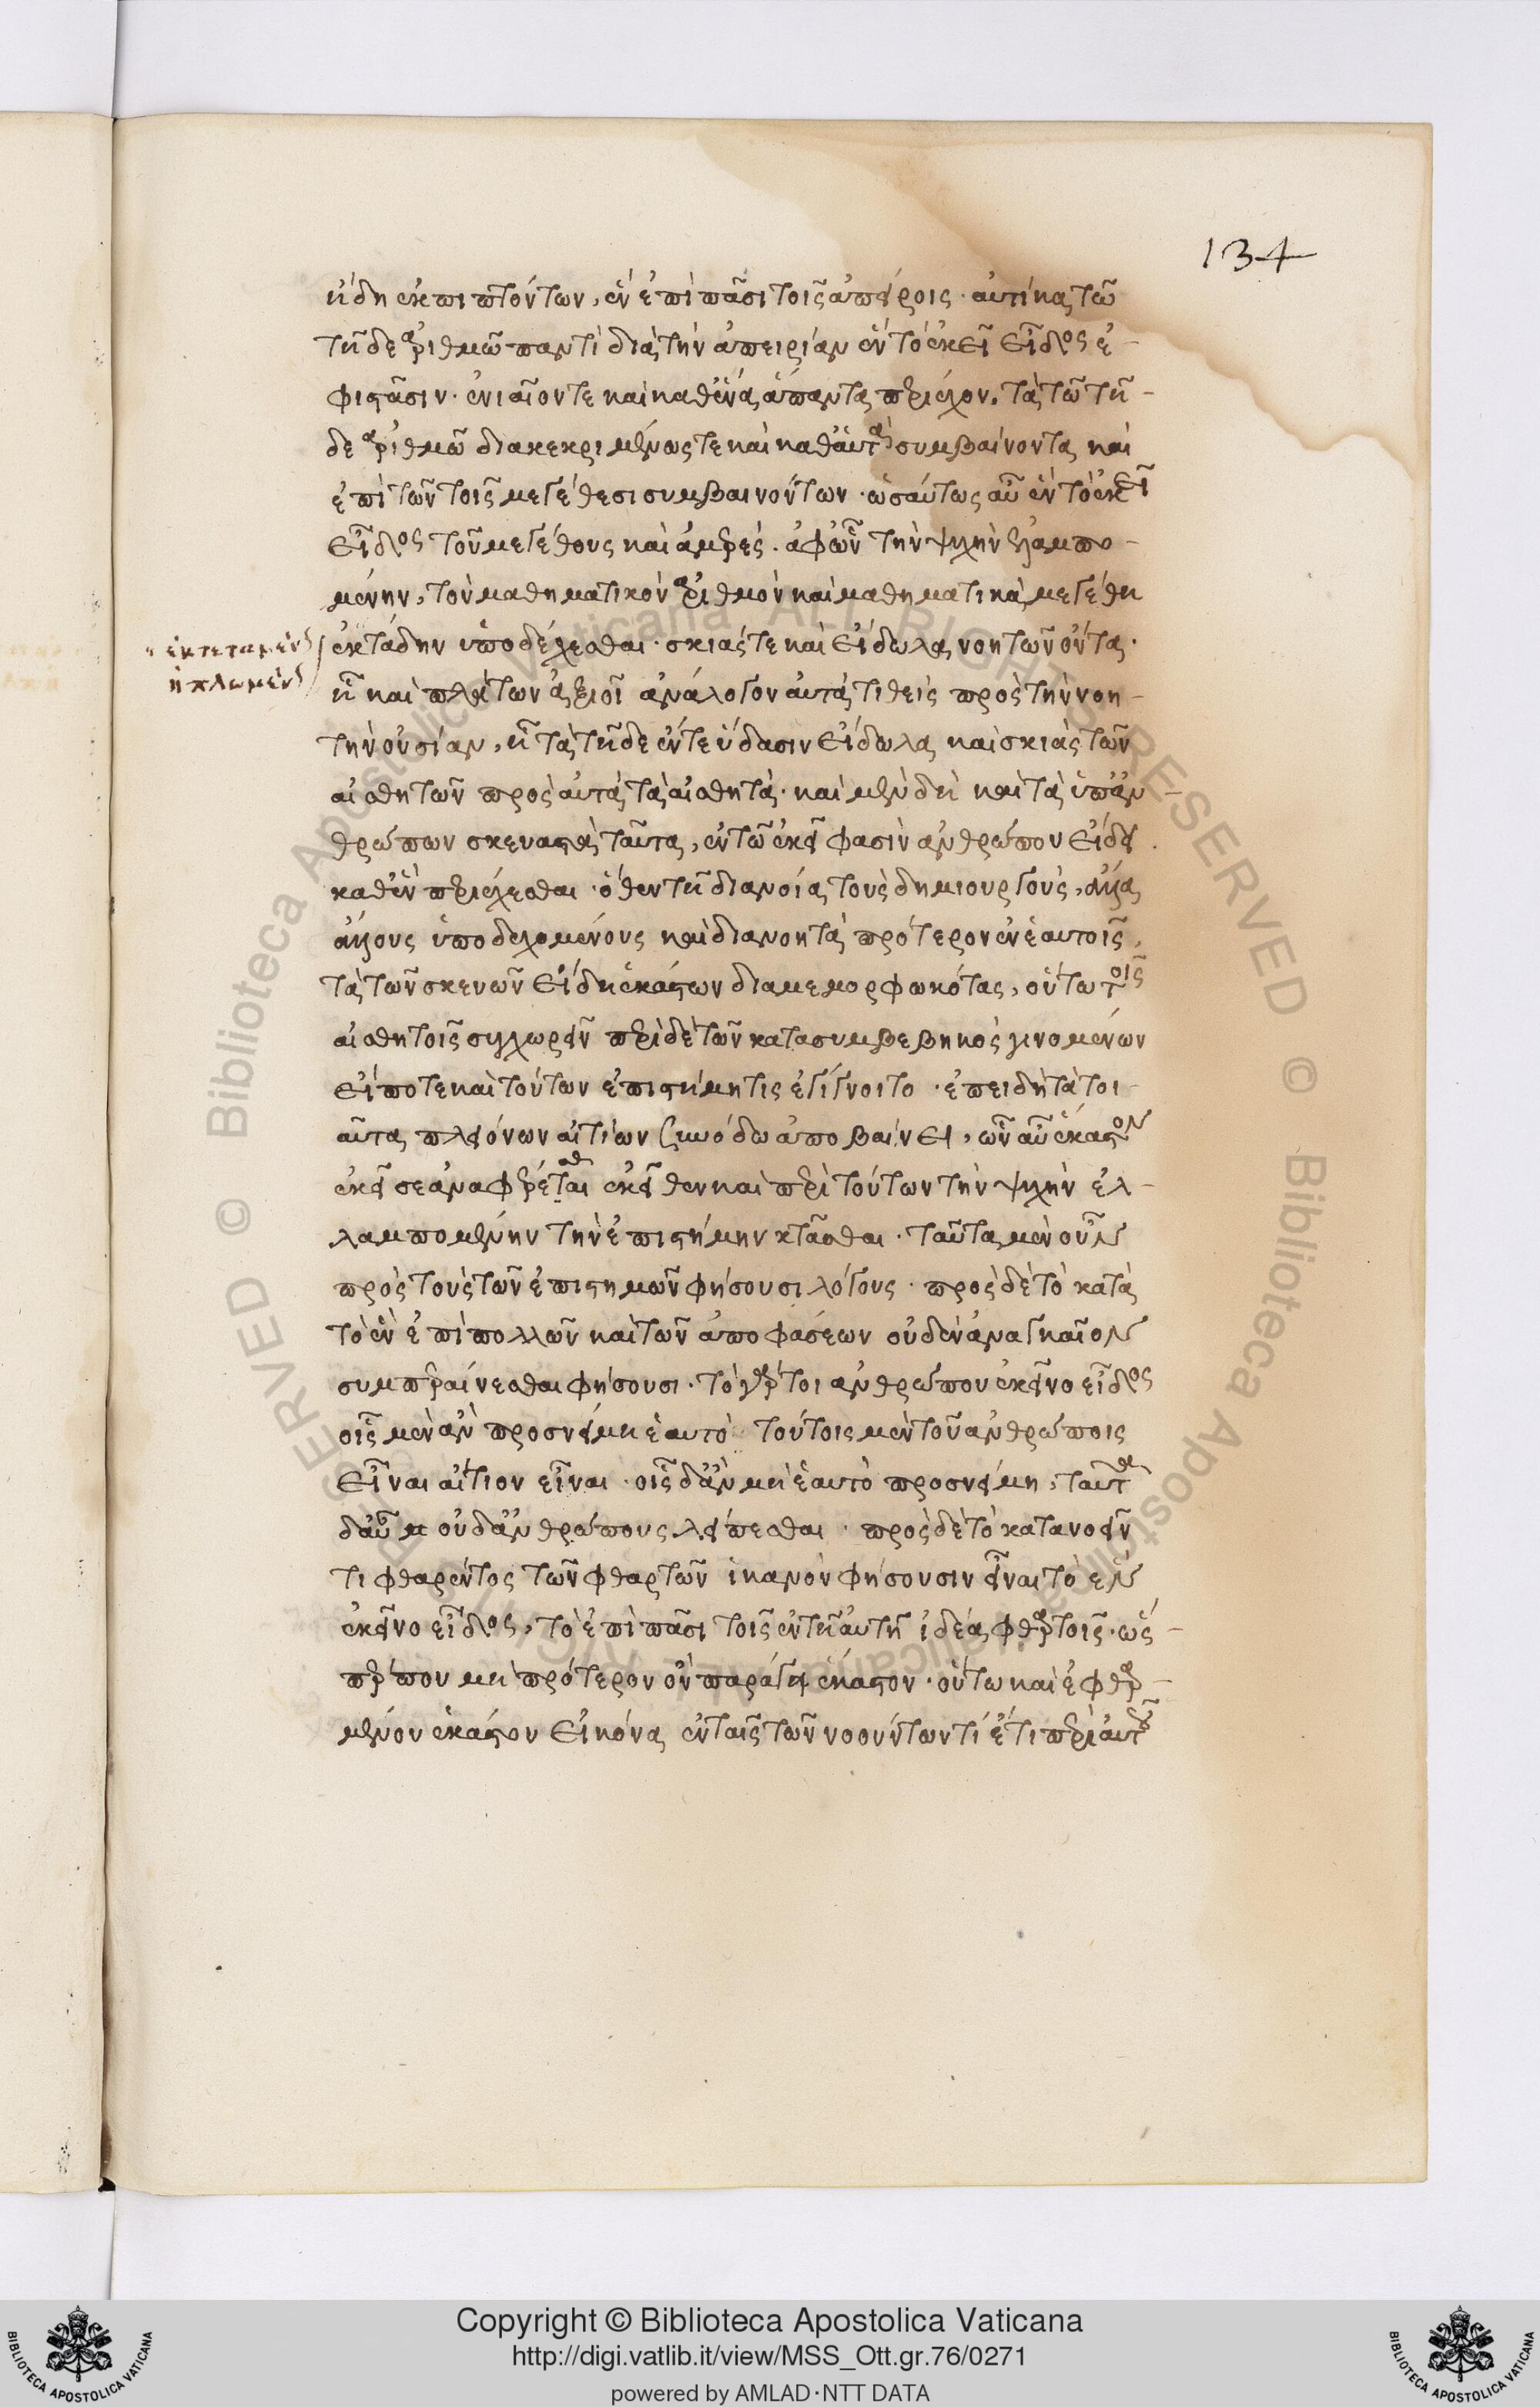 134
ἤδη ἐκπιπτόντων, ἓν ἐπὶ πᾶσι τοῖς ἀπείροις. αὐτίκα τῶ
τῆδε ἀριθμῶ παντὶ διὰ τὴν ἀπειρίαν ἓν τὸ ἐκεῖ εἶδος ἐ-
φιστᾶσιν. ἑνιαῖον τε καὶ καθ' ἓν ἅπαντα περιέχον. τὰ τῶ τῆ-
δε ἀριθμῶ διακεκριμένως τε καὶ καθ' αὑτὰ συμβαίνοντα καὶ
ἐπὶ τῶν τοῖς μεγέθεσι συμβαινόντων. ὡσαύτως αὖ ἓν τὸ ἐκεῖ
εἶδος τοῦ μεγέθους καὶ ἀμερές. ἀφ' ὧν τὴν ψυχὴν ἐλλαμπο-
μένην, τὸν μαθηματικὸν ἀριθμὸν καὶ μαθηματικὰ μεγέθη
ἐκτεταμένως ἐκτάδην ὑποδέχεσθαι. σκιάς τε καὶ εἴδωλα νοητῶν ὄντα.
ἡπλωμένως ἧ καὶ πλάτων ἀξιοῖ ἀνάλογον αὐτὰ τιθεὶς πρὸς τὴν νοη-
τὴν οὐσίαν, ἧ τὰ τῆδε ἔν τε ὕδασιν εἴδωλα καὶ σκιὰς τῶν
αἰσθητῶν πρὸς αὐτὰ τὰ αἰσθητά. καὶ μὲν δὴ καὶ τὰ ὑπ' ἀν-
θρώπων σκευαστὰ ταῦτα, ἐν τῶ ἐκεῖ φασὶν ἀνθρώπου εἴδει
καθ' ἓν περιέχεσθαι. ὅθεν τῆ διανοία τοὺς δημιουργοὺς, ἄλλα
ἄλλους ὑποδεχομένους καὶ διανοητὰ πρότερον ἐν ἑαυτοῖς,
τὰ τῶν σκευῶν εἴδη ἑκάστων διαμεμορφωκότας, οὕτω τοῖς
αἰσθητοῖς ἐγχωρεῖν περὶ δὲ τῶν κατασυμβεβηκὸς γινομένων
εἴποτε καὶ τούτων ἐπιστήμη τις ἐγίγνοιτο. ἐπειδὴ τὰ τοι-
αῦτα πλειόνων αἰτίων συνόδω ἀποβαίνει, ὧν αὖ ἕκαστον
ἐκεῖσε ἀναφέρεται ἐκεῖθεν καὶ περὶ τούτων τὴν ψυχὴν ἐλ-
λαμπομένην τὴν ἐπιστήμην κτᾶσθαι. ταῦτα μὲν οὖν
πρὸς τοὺς τῶν ἐπιστημῶν φήσουσι λόγους. πρὸς δὲ τὸ κατὰ
τὸ ἓν ἐπὶ πολλῶν καὶ τῶν ἀποφάσεων οὐδὲν ἀναγκαῖον
συμπεραίνεσθαι φήσουσι. τὸ γάρ τοι ἀνθρώπου ἐκεῖνο εἶδος
οἷς μὲν ἂν προσνείμη ἑαυτὸ τούτοις μὲν τοῦ ἀνθρώποις
εἶναι αἴτιον εἶναι. οἷς δ' ἂν μὴ ἑαυτὸ προσνείμη, ταῦτα
δ' αὖ μ οὐδ' ἀνθρώπους λείπεσθαι. πρὸς δὲ τὸ κατανοεῖν
τι φθαρέντος τῶν φθαρτῶν ἱκανὸν φήσουσιν εἶναι τὸ ἓν
ἐκεῖνο εἶδος, τὸ ἐπὶ πᾶσι τοῖς ἐν τῆ αὐτῆ ἰδέα φθαρτοῖς. ὥς-
περ που μὴ πρότερον ὂν παράγει ἕκαστον. οὕτω καὶ ἐφθαρ-
μένον ἕκαστον εἰκόνα ἐν ταῖς τῶν νοούντων τί ἔτι περὶ αὐτῶν